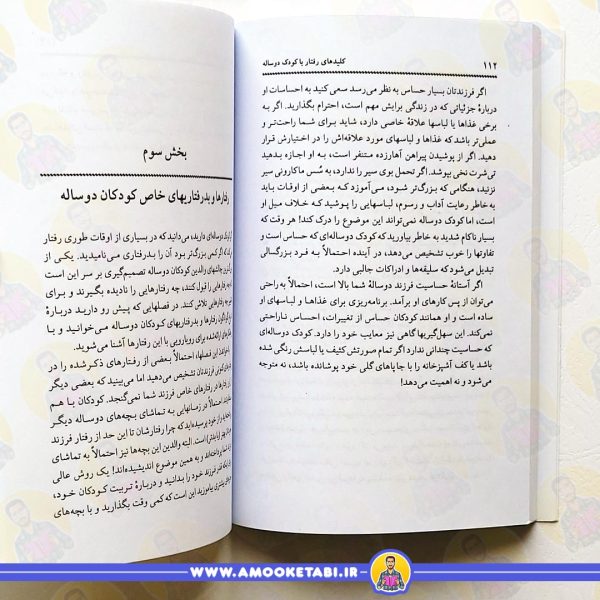 ۱۱۲
کلیدهای رفتار با کودک دوساله
اگر فرزندتان بسیار حساس به نظر می‌رسد سعی کنید به احساسات او
دربارهٔ جزئیاتی که در زندگی برایش مهم است، احترام بگذارید. اگر به
برخی غذاها یا لباسها علاقهٔ خاصی دارد، شاید برای شما راحت‌تر و
عملی‌تر باشد که غذاها و لباسهای مورد علاقه‌اش را در اختیارش قرار
دهید. اگر از پوشیدن پیراهن آهارزده متنفر است، به او اجازه بدهید
تی‌شرت نخی بپوشد. اگر تحمل بوی سیر را ندارد، به سُس او سیر
نزنید، هنگامی که بزرگ‌تر شود، می‌آموزد که بعضی از اوقات باید
به خاطر رعایت آداب و رسوم، لباسهایی را پوشید که خلاف میل او
است، اما کودک دوساله نمی‌تواند این موضوع را درک کند! هر وقت که
بسیار ناکام شدید به خاطر بیاورید که کودک دوساله‌ای که حساس است و
تفاوتها را خوب تشخیص می‌دهد، در آینده احتمالاً به فرد بزرگسالی
تبدیل می‌شود که سلیقه‌ها و ادراکات جالبی دارد.
اگر آستانهٔ حساسیت فرزند دوسالهٔ شما بالا است، احتمالاً به راحتی
می‌توان از پس کارهای او برآمد. برنامه‌ریزی برای غذاها و لباسهای او
ساده است و او همانند کودکان حساس از تغییرات، احساس ناراحتی
نمی‌کند. این سهل‌گیریها گاهی نیز معایب خود را دارد. کودک دوساله‌ای
که حساسیت چندانی ندارد اگر تمام صورتش کثیف یا لباسش رنگی شده
باشد یا کف آشپزخانه را با جاپاهای گلی خود پوشانده باشد، نه متوجه
می‌شود و نه اهمیت می‌دهد!
بخش سوم
رفتارها و بدرفتاریهای خاص کودکان دوساله
دوساله‌ای دارید، می‌دانید که در بسیاری از اوقات طوری رفتار
که اگر کسی بزرگ‌تر بود آن را بدرفتاری می‌نامیدید. یکی از
چالشهای والدین کودکان دوساله تصمیم‌گیری بر سر این است
رفتارهایی را قبول کنند، چه رفتارهایی را نادیده بگیرند و برای
رفتارهایی تلاش کنند. در فصلهایی که پیش رو دارید دربارهٔ
رفتارها و بدرفتاریهای کودکان دوساله می‌خوانید و با
ارائه‌شده برای رویارویی با این رفتارها آشنا می‌شوید.
این فصلها، احتمالاً بعضی از رفتارهای ذکرشده را در
فرزندتان تشخیص می‌دهید اما می‌بینید که بعضی دیگر
در رفتارهای خاص فرزند شما نمی‌گنجد. کودکان با هم
احتمالاً در زمانهایی به تماشای بچه‌های دوساله دیگر
از خود پرسیده‌اید که چرا رفتارشان تا این حد از رفتار فرزند
است. البته والدین این بچه‌ها نیز احتمالاً به تماشای
پرداخته‌اند و به همین موضوع اندیشیده‌اند! یک روش عالی
فرزند خود را بدانید و دربارهٔ تربیت کودکان خود،
بیشتری بیاموزید این است که کمی وقت بگذارید و با بچه‌های
WWW.AMOOKETABI.IR